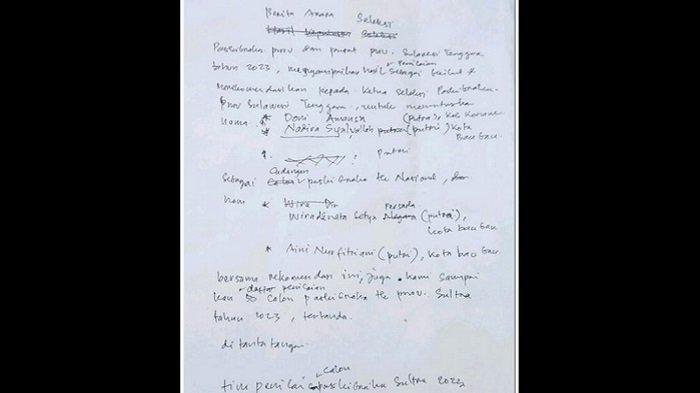 Berita Acara Seleksi
Hasil Keputusan Seleksi
Paskibraka prov dan pusat prov. Sulawesi Tenggara
tahun 2023, menyampaikan hasil penilaian sebagai berikut
Merekomendasikan kepada Ketua Seleksi Paskibraka
Prov Sulawesi Tenggara, untuk memutuskan
nama * Doni Amansa (putra), Kab Konawe
* Nadira Syalvallah putra (putri) Kota
Bau Bau
putri
Cadangan
Sebagai calon paskibraka tk Nasional, dan
nam * Wira Din
Wiradinata Setya Negara Persada (putra),
Kota bau bau
* Aini Nurfitriani (putri), Kota bau bau
bersama rekomendasi ini, juga kami sampai
kan daftar penilaian 50 Calon paskibraka tk prov. Sultra
tahun 2023, tertanda.
ditanta tangan
tim penilai calon paskibraka Sultra 2023